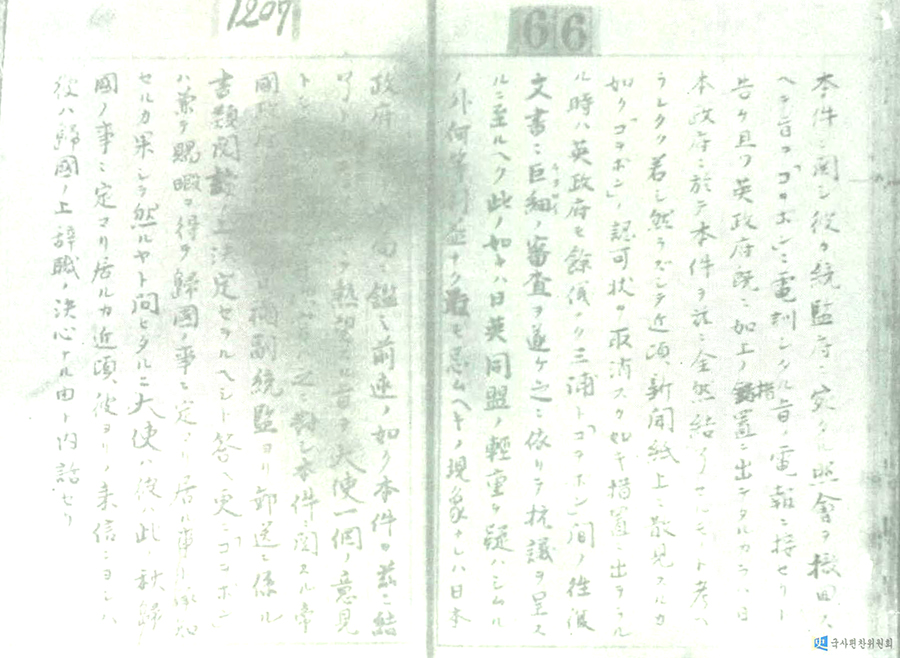 1207
66
本件ニ関シ彼ヨリ統監府ニ宛タル照會ヲ撤回ス
ヘキ旨「コツボン」ニ電訓シタル旨ノ電報ニ接セリト
告ケ且ツ英政府既ニ如上ノ措置ニ出シタルカラハ日
本政府ニ於テ本件ヲ茲ニ全然結了セルモノト考ヘ
ラレタク若シ然ラズシテ近頃新聞紙上ニ散見スルカ
如ク「コツボン」ノ認可状ヲ取消スカ如キ措置ニ出ラルル
ル時ハ英政府モ餘儀ナク三浦ト「コツボン」間ノ往復
文書ニ巨細ノ審査ヲ遂ケ之ニ依リテ抗議ヲ呈ス
ルニ至ルヘク此ノ如キハ日英同盟ノ輕重ヲ疑ハシムル
ノ外何等利益ナク最モ忌ムヘキノ現象ナレハ日本
政府 ニ鑑ミ前述ノ如ク本件ヲ茲ニ結
了 熱望スル旨ヲ大使一個ノ意見
ト 之ニ對シ本件ニ関スル帝
國政府 副統監ヨリ郵送ニ係ル
書類閲読ノ上決定セラルヘシト答ヘ更ニ「コツボン」
ハ兼テ賜暇ヲ得テ歸國ノ事ニ定マリ居ル事
セルカ果シテ然ルヤト問ヒタルニ大使ハ彼ハ此ノ秋歸
國ノ事ニ定マリ居ルカ近頃彼ヨリノ来信ニヨレハ
彼ハ歸國ノ上辞職ノ決心ナル由ト内話セリ
국사편찬위원회